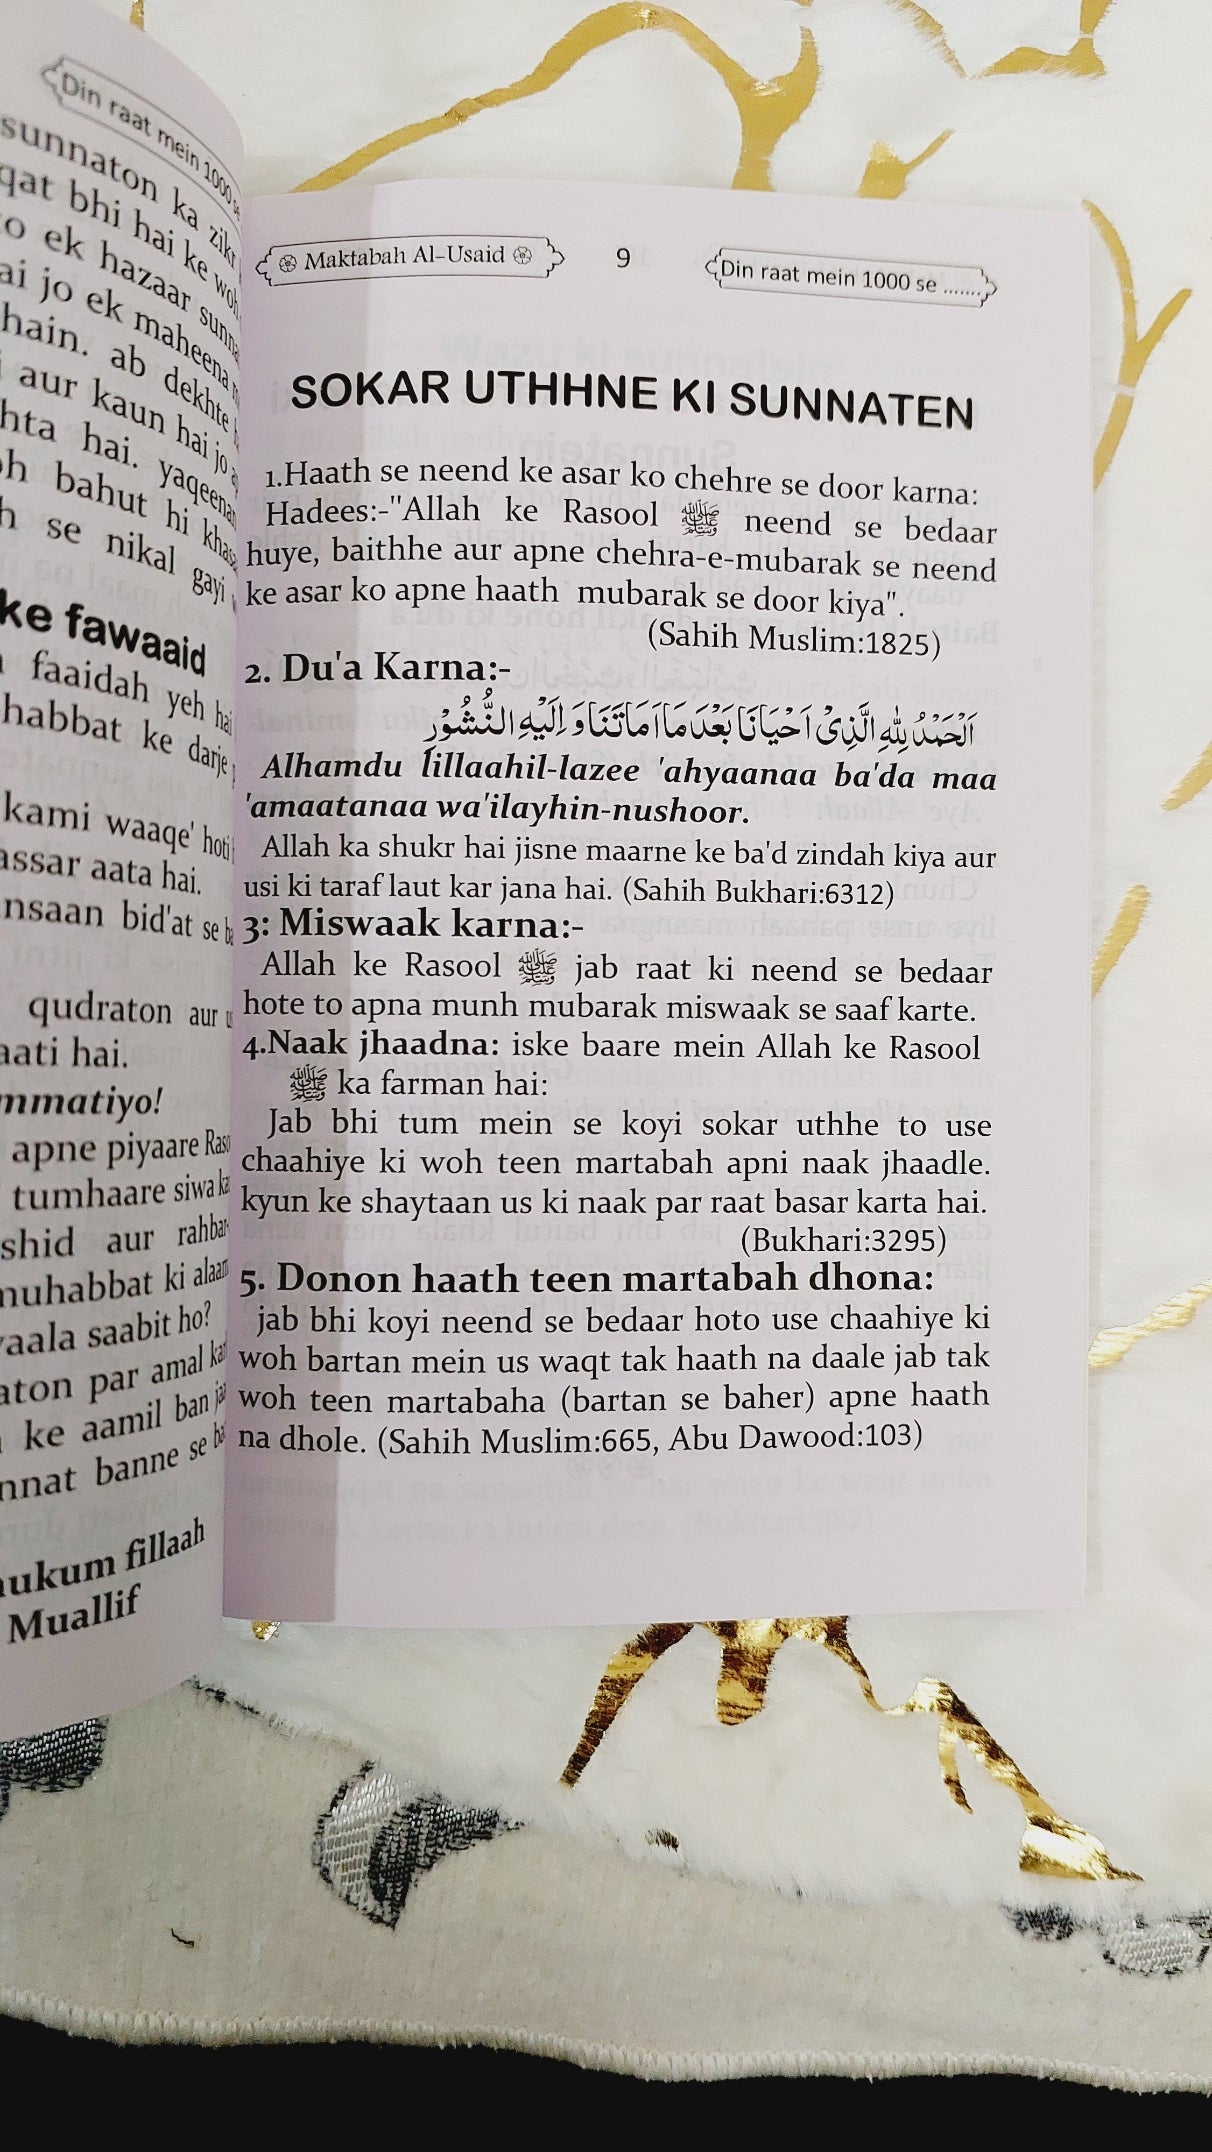 Din raat mein 1000 se
sunnaton ka zikr
bhi hai ke woh
ek hazaar
jo ek maheena
hain. ab dekhte
aur kaun hai jo
hai. yaqeenan
bahut hi
se nikal gayi
ke fawaaid
faaidah yeh hai
ke darje
kami waaqe' hoti
aata hai.
bid'at se
qudraton aur
hai.
apne piyaare
tumhaare siwa
aur
ki
saabit ho?
par amal
ke aamil ban
banne se
fillaah
Muallif
Maktabah Al-Usaid
9
Din raat mein 1000 se .......
SOKAR UTHHNE KI SUNNATEN
1.Haath se neend ke asar ko chehre se door karna:
Hadees:-"Allah ke Rasool ﷺ neend se bedaar
huye, baithhe aur apne chehra-e-mubarak se neend
ke asar ko apne haath mubarak se door kiya".
(Sahih Muslim:1825)
2. Du'a Karna:-
اَلْحَمْدُ لِلّٰهِ الَّذِیْ اَحْيَانَا بَعْدَ مَا اَمَاتَنَا وَ اِلَيْهِ النُّشُوْرِ
Alhamdu lillaahil-lazee 'ahyaanaa ba'da maa
'amaatanaa wa'ilayhin-nushoor.
Allah ka shukr hai jisne maarne ke ba'd zindah kiya aur
usi ki taraf laut kar jana hai. (Sahih Bukhari:6312)
3: Miswaak karna:-
Allah ke Rasool ﷺ jab raat ki neend se bedaar
hote to apna munh mubarak miswaak se saaf karte.
4.Naak jhaadna: iske baare mein Allah ke Rasool
ﷺ ka farman hai:
Jab bhi tum mein se koyi sokar uthhe to use
chaahiye ki woh teen martabah apni naak jhaadle.
kyun ke shaytaan us ki naak par raat basar karta hai.
(Bukhari:3295)
5. Donon haath teen martabah dhona:
jab bhi koyi neend se bedaar hoto use chaahiye ki
woh bartan mein us waqt tak haath na daale jab tak
woh teen martabaha (bartan se baher) apne haath
na dhole. (Sahih Muslim:665, Abu Dawood:103)